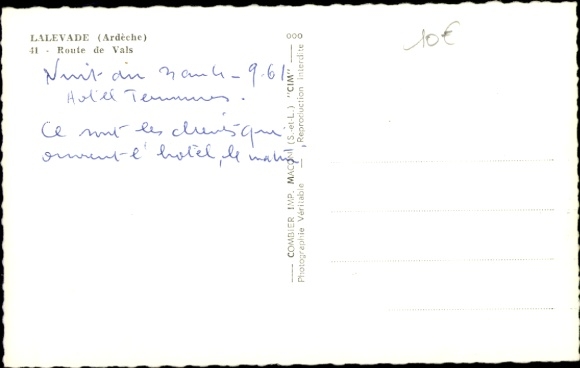 LALEVADE (Ardèche)
41 - Route de Vals
Nuit du 3 au 4 - 9.61
Hotel Terminus.
Ce sont les clients qui
ouvrent l'hotel, le matin,
10€
COMBIER IMP. MACON (S.-et-L.) "CIM"
Photographie Véritable Reproduction interdite